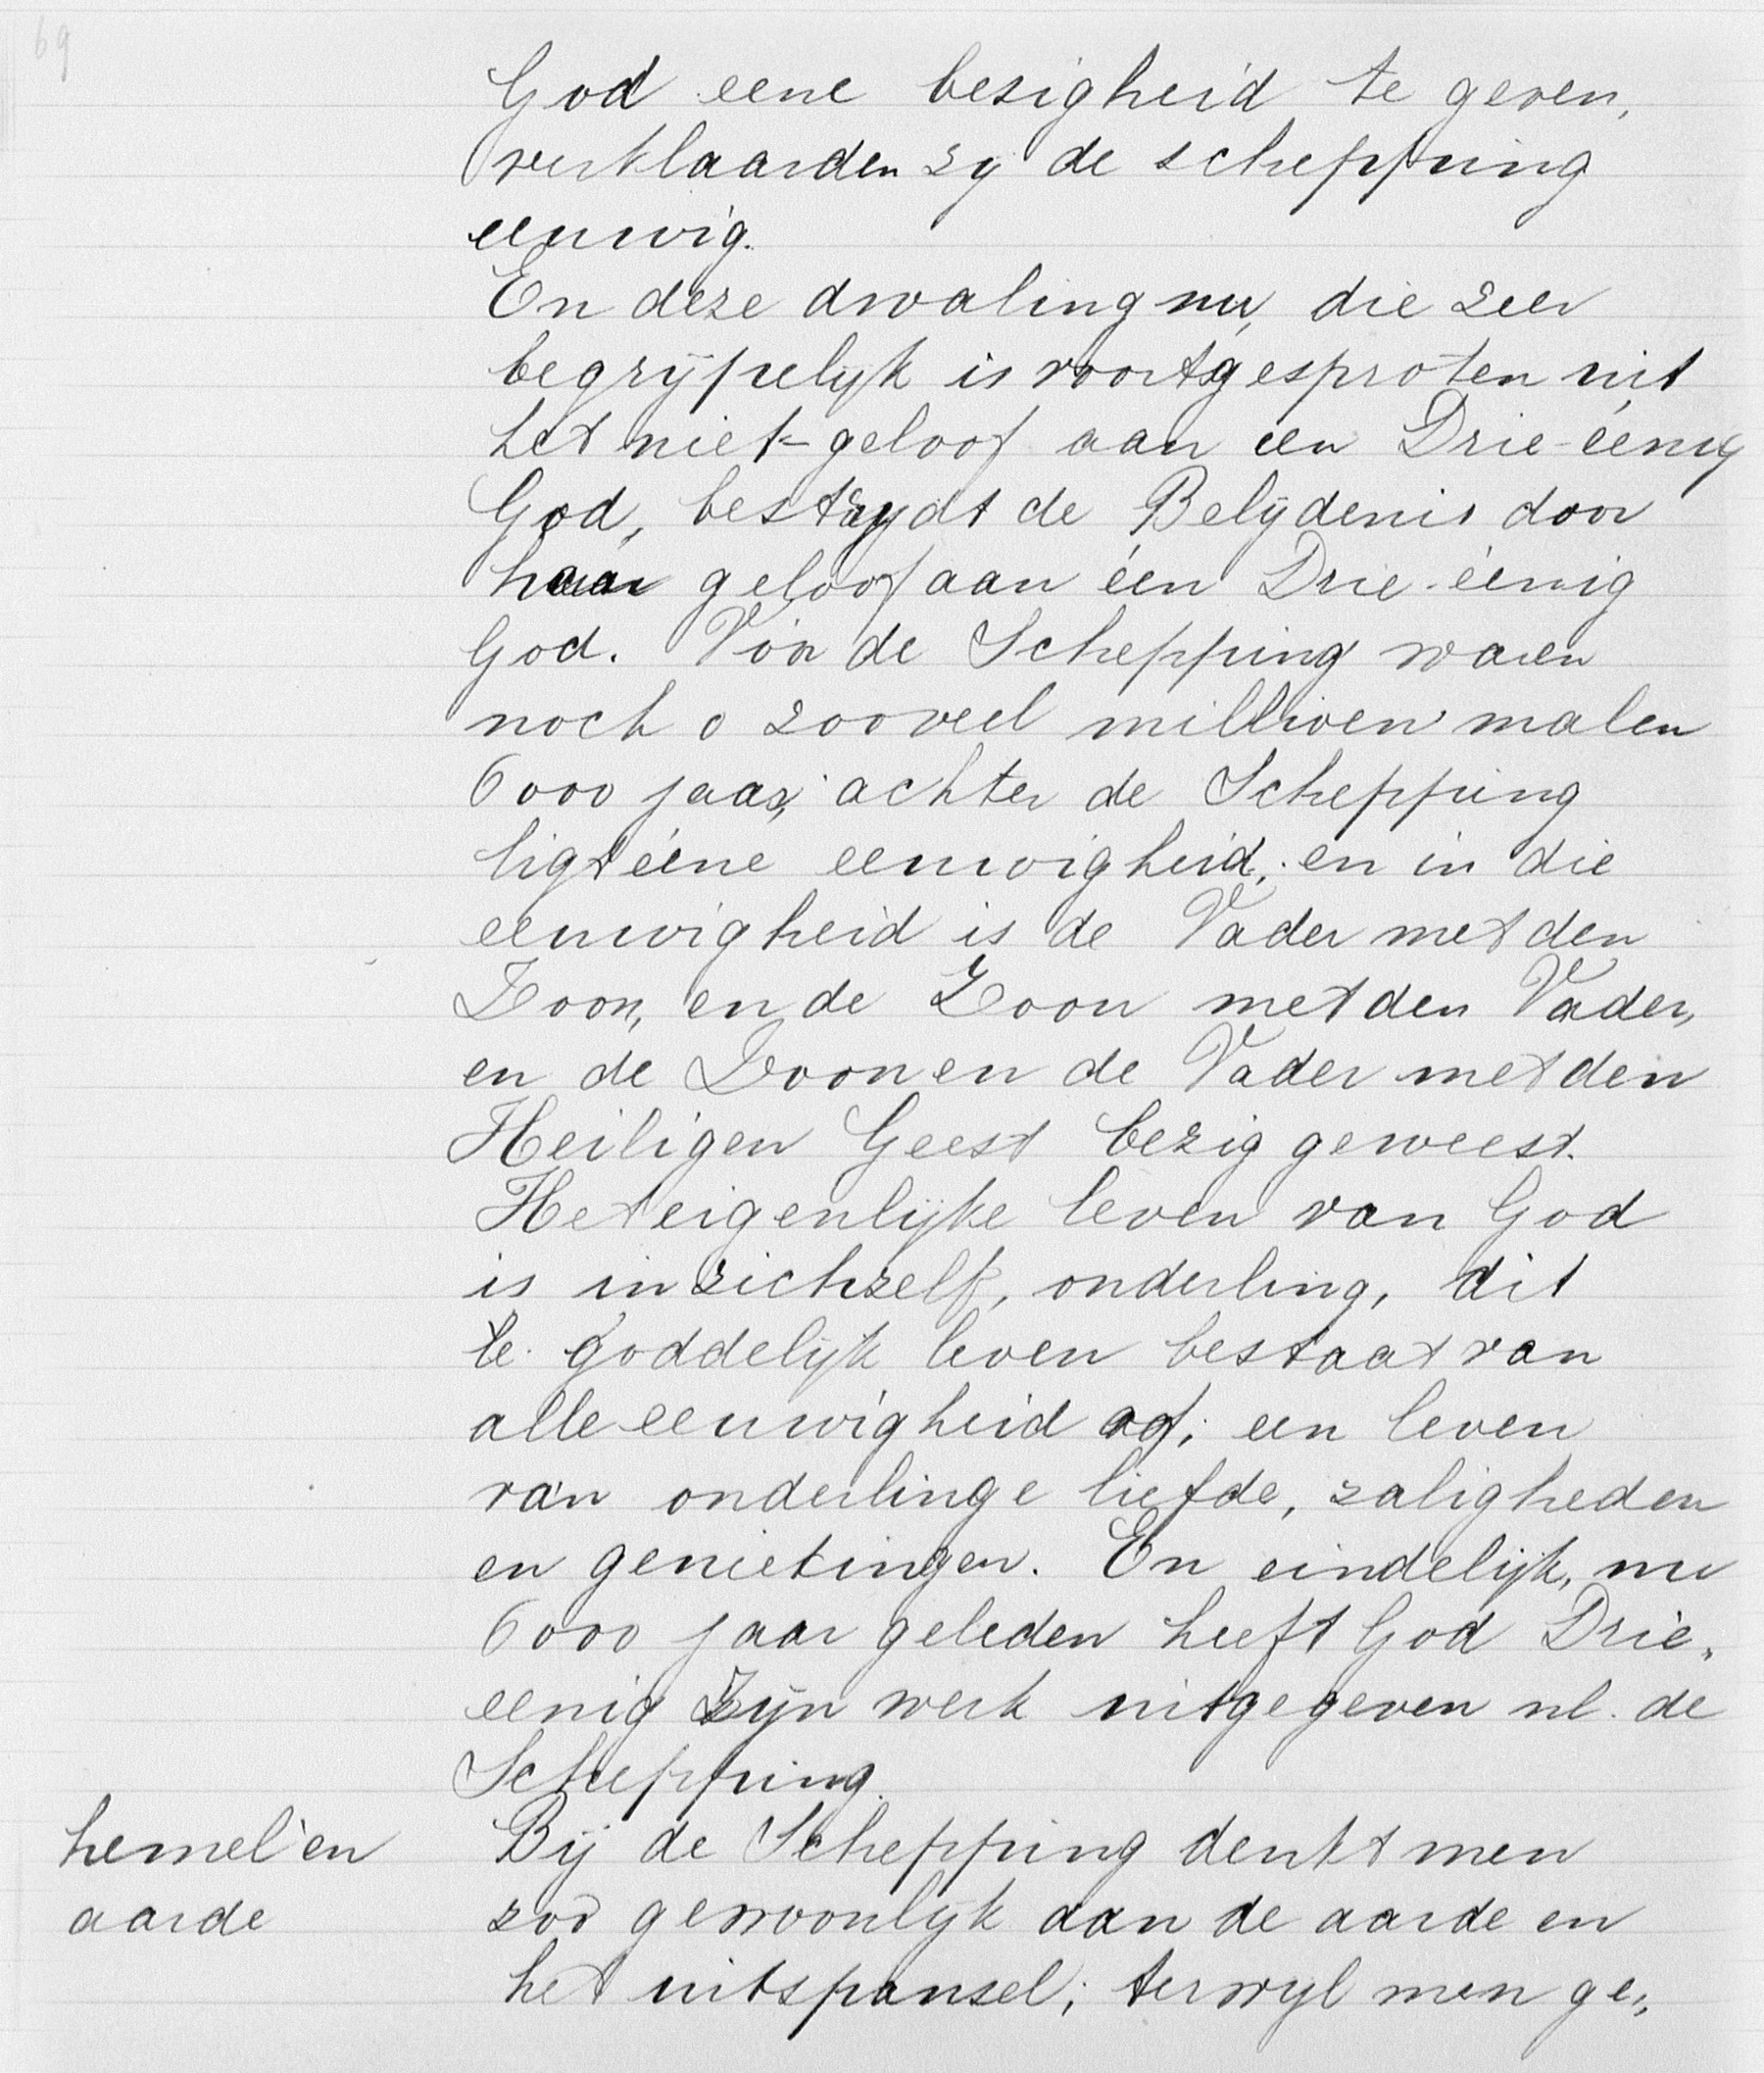 69
God eene besigheid te geven,
verklaarden zy de schepping
eeuwig.
En deze dwaling nu, die zeer
begrijpelyk is voortgesproten uit
het niet-geloof aan een Drie-éenig
God, bestrydt de Belijdenis door
haar geloof aan één Drie-éenig
God. Vóór de Schepping waren
noch o zooveel millioen malen
6000 jaar, achter de Schepping
ligt éene eeuwigheid; en in die
eeuwigheid is de Vader met den
Zoon, en de Zoon met den Vader,
en de Zoon en de Vader met den
Heiligen Geest bezig geweest.
Het eigenlijke leven van God
is in zichzelf, onderling, dit
te goddelijk leven bestaat van
alle eeuwigheid af; een leven
van onderlinge liefde, zaligheden
en genietingen. En eindelijk, nu
6000 jaar geleden heeft God Drie„
eenig Zijn werk uitgegeven nl. de
Schepping.
hemel en
aarde
Bij de Schepping denkt men
zoo gewoonlyk aan de aarde en
het uitspansel; terwyl men ge„